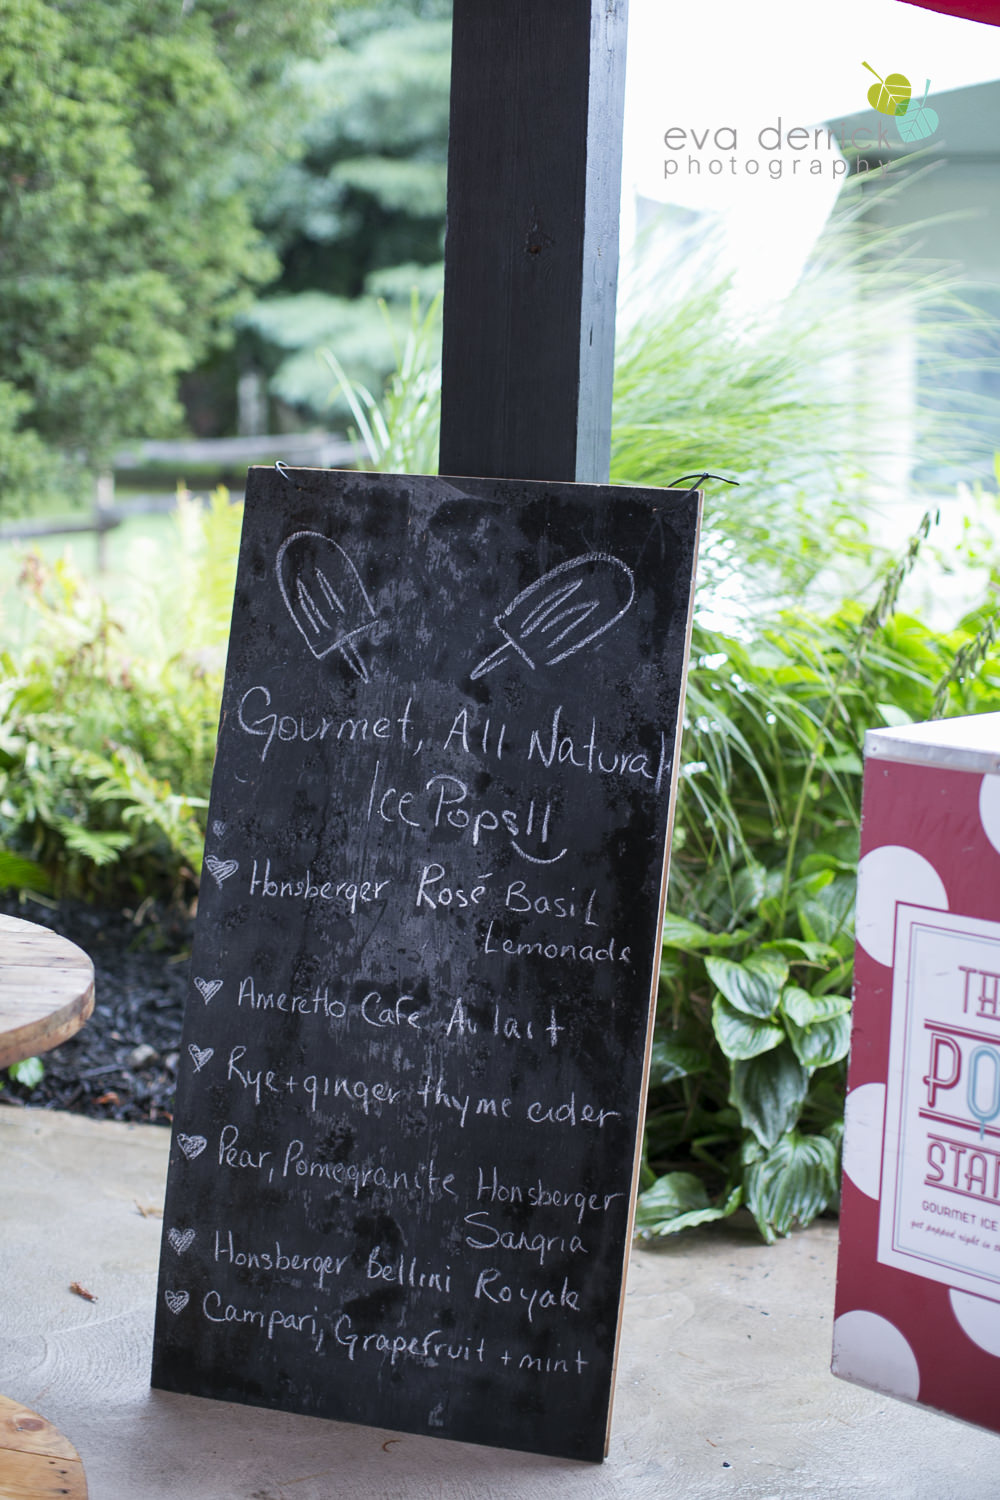 eva derrick
photography
Gourmet, All Natural
Ice Pops!!
Honsberger Rosé Basil
Lemonade
Ameretto Cafe Au lait
Rye + ginger thyme cider
Pear, Pomegranite Honsberger
Sangria
Honsberger Bellini Royale
Campari, Grapefruit + mint
GOURMET ICE